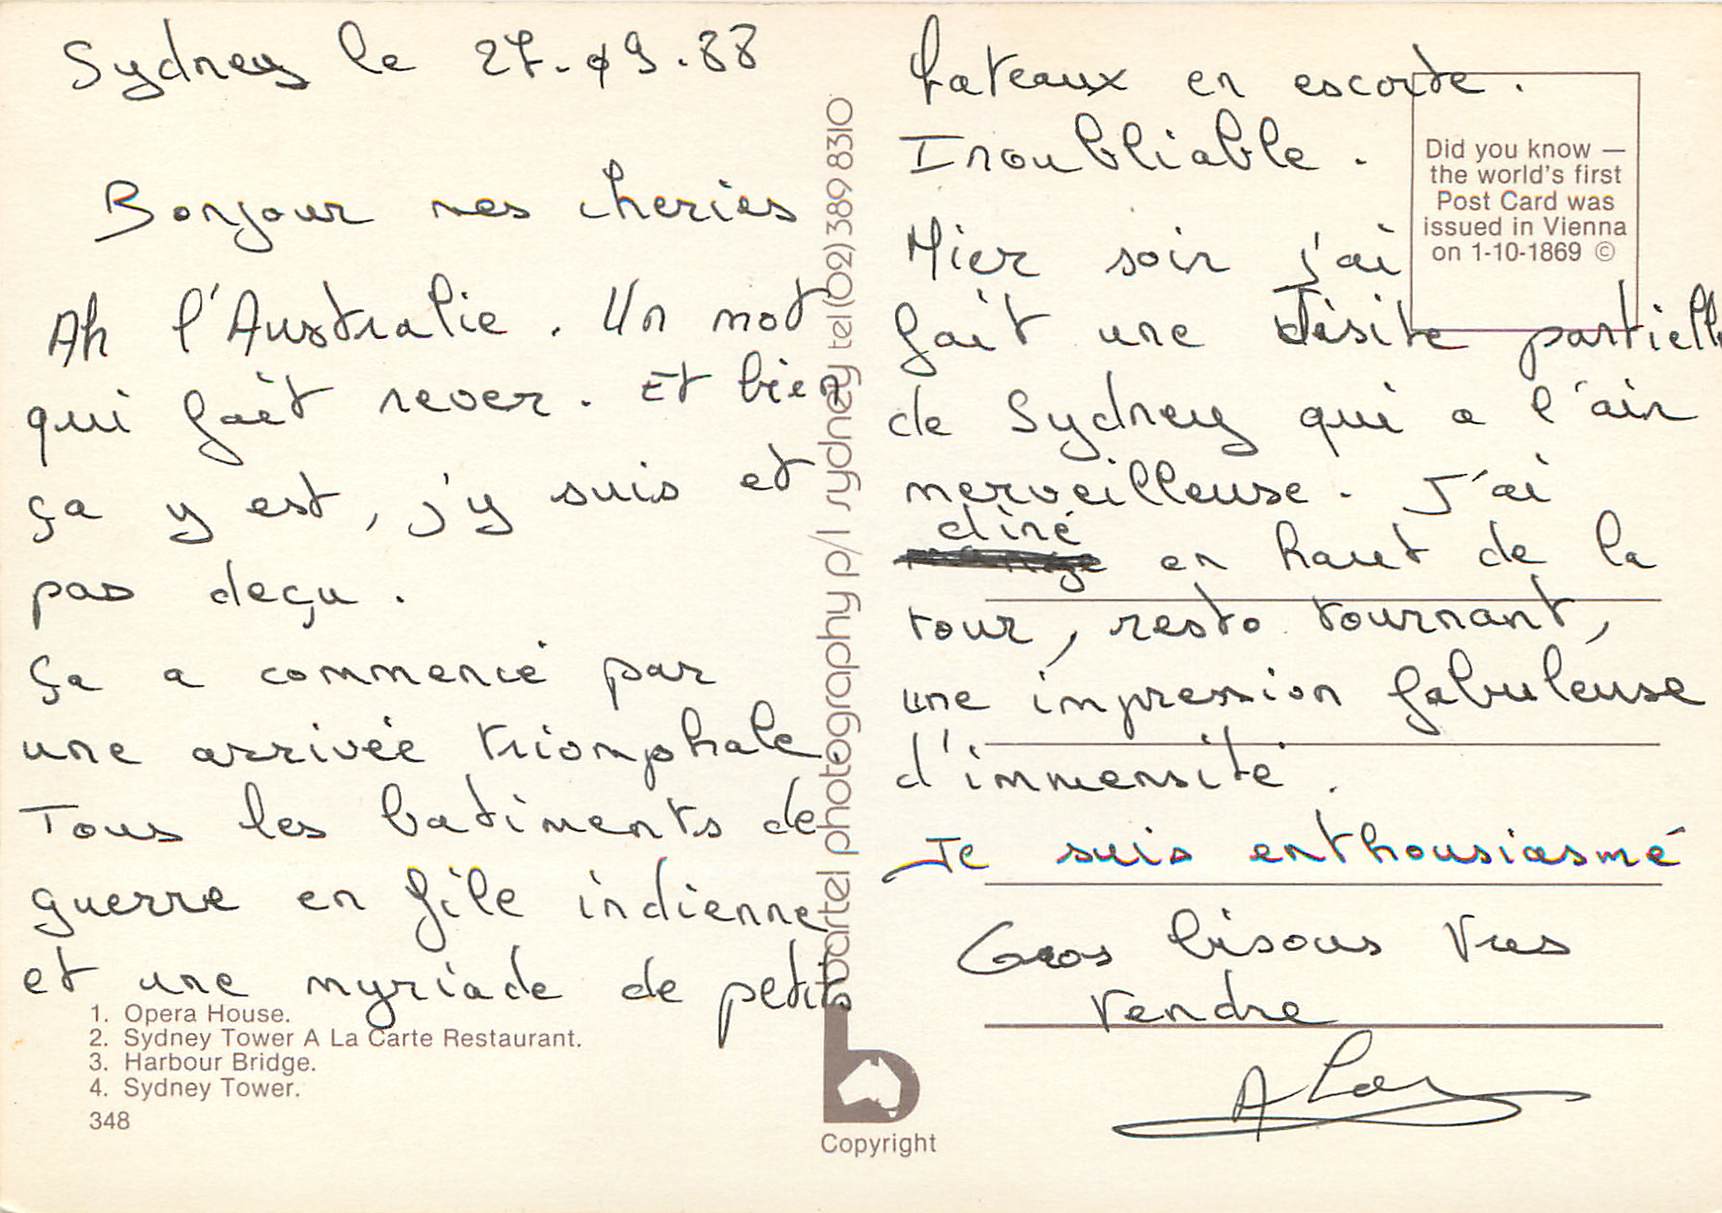 Sydney le 27.09.88
Bonjour mes cheries
Ah l'Australie. Un mot
qui fait rever. Et bien
ça y est, j'y suis et
pas deçu.
Ça a commencé par
une arrivée triomphale
Tous les batiments de
guerre en file indienne
et une myriade de petits
1. Opera House.
2. Sydney Tower A La Carte Restaurant.
3. Harbour Bridge.
4. Sydney Tower.
348
bartel photography p/l sydney tel (02) 389 8310
b
Copyright
bateaux en escorte.
Inoubliable.
Did you know —
the world's first
Post Card was
issued in Vienna
on 1-10-1869 ©
Hier soir j'ai
fait une visite partielle
de Sydney qui a l'air
merveilleuse. J'ai
diné
en haut de la
tour, resto tournant,
une impression fabuleuse
d'immensité.
Je suis enthousiasmé
Gros bisous